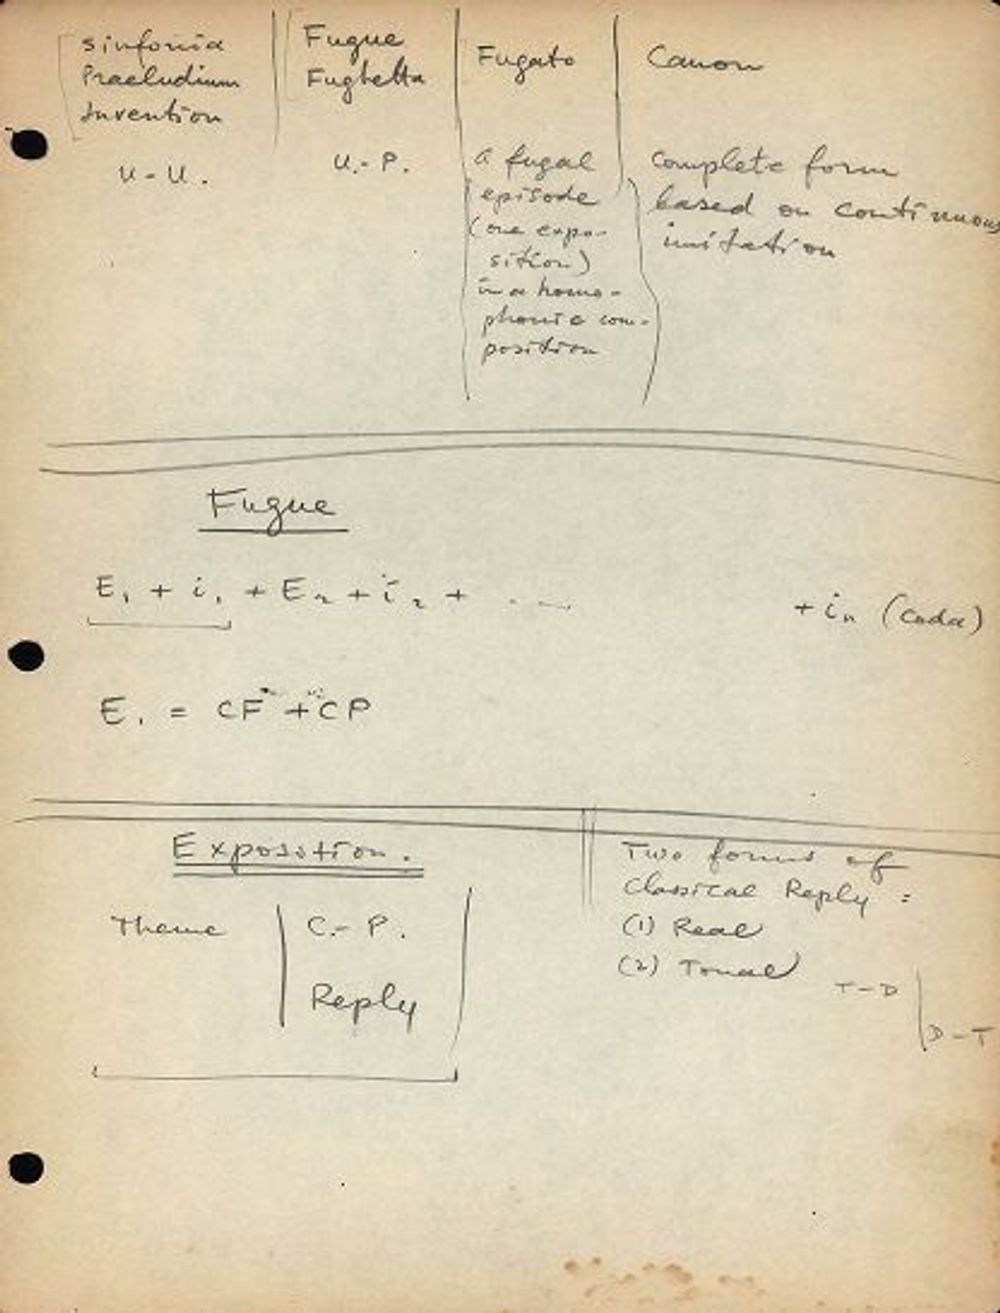 Sinfonia
Praeludium
Invention
U-U.
Fugue
Fughetta
U.-P.
Fugato
A fugal
episode
(one expo-
sition)
in a homo-
phonic com-
position
Canon
Complete form
based on continuous
imitation
Fugue
E₁ + i₁ + E₂ + i₂ + ..... + iₙ (Coda)
E₁ = CF + CP
Exposition.
Theme
C.-P.
Reply
Two forms of
Classical Reply:
(1) Real
(2) Tonal
T-D
D-T